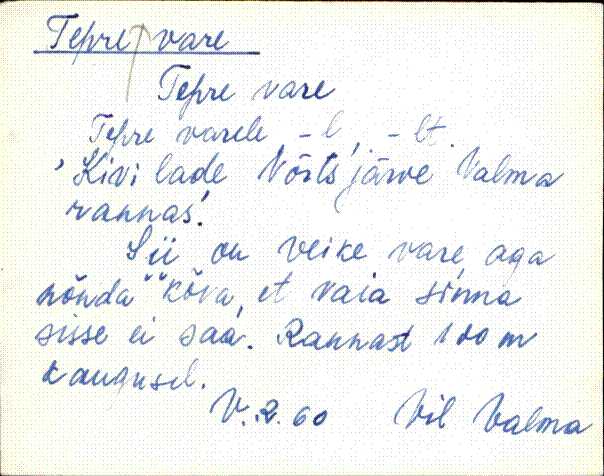 Tepre vare
Tepre vare
Tepre varele -l, -lt.
'Kivilade Võrtsjärve Valma
rannas.'
Sii on veike vare, aga
nõnda kõva, et vaia sinna
sisse ei saa. Rannast 100 m
kaugusel.
V.R. 60 Vil Valma